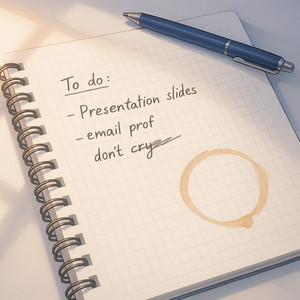 To do:
- Presentation slides
- email prof
don't cry